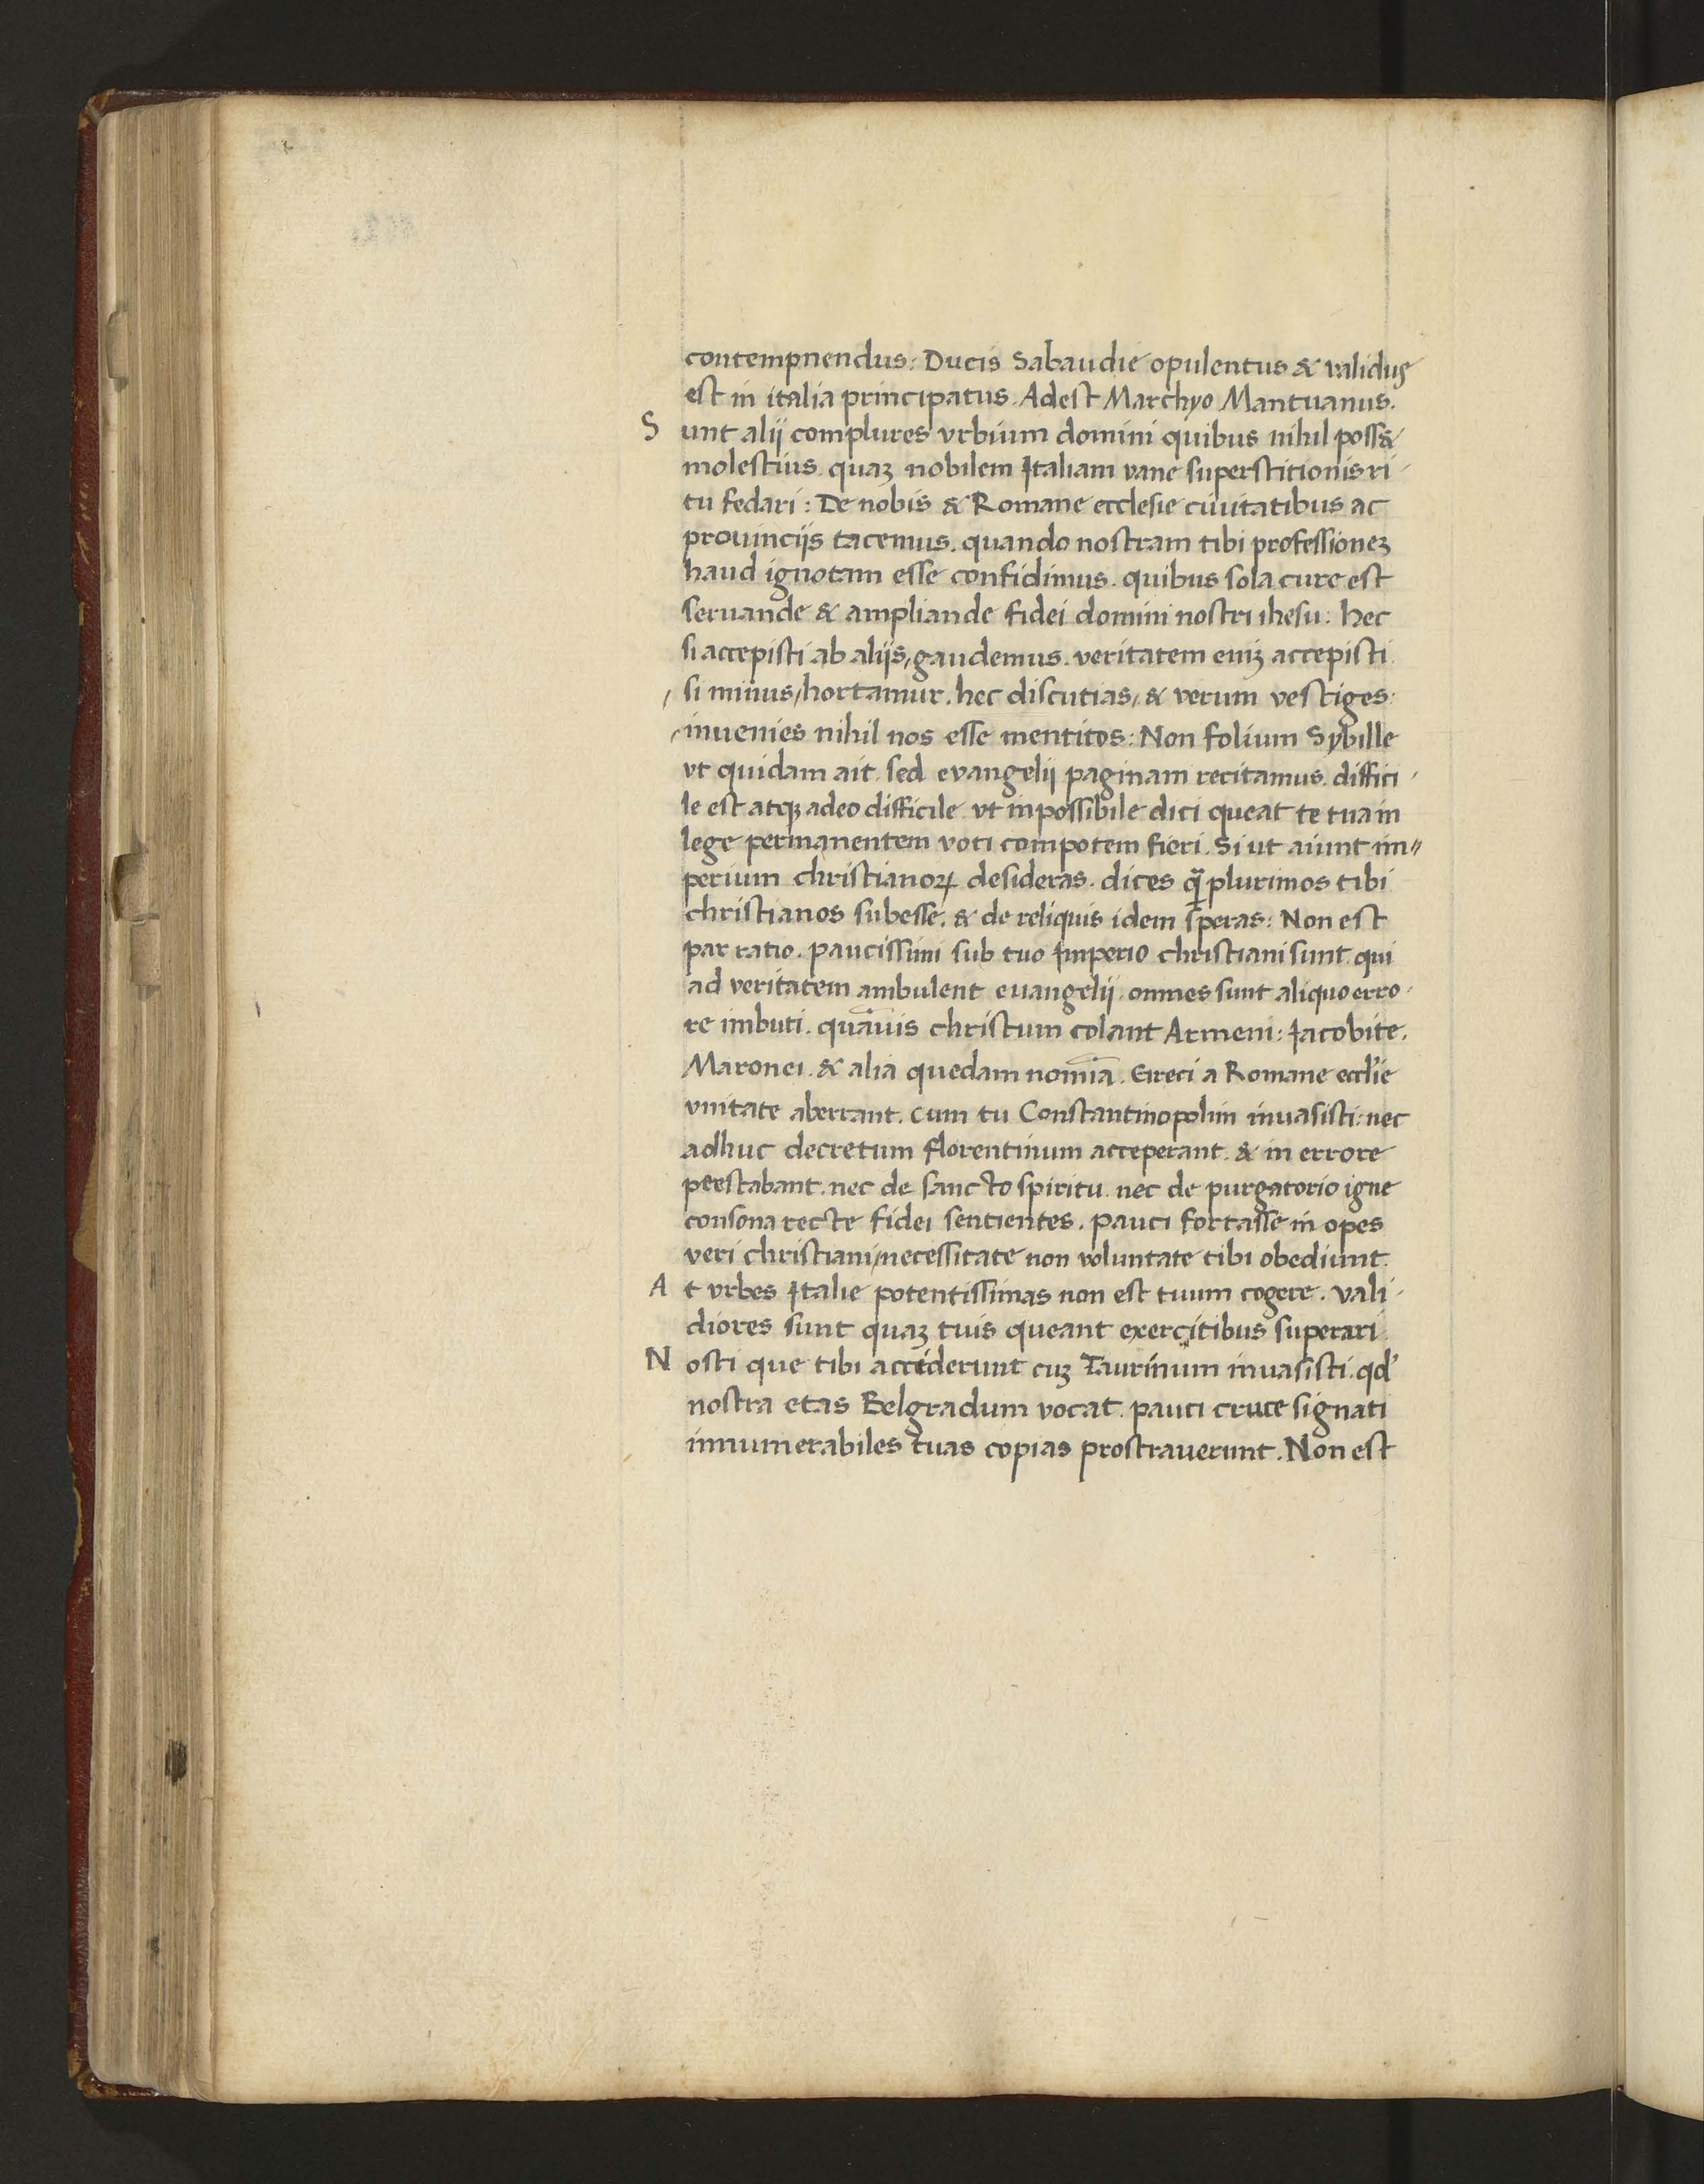 contempnendus: Ducis Sabaudie opulentus & validus
est in italia principatus. Adest Marchyo Mantuanus.
Sunt alij complures vrbium domini quibus nihil poss&
molestius quaꝫ nobilem Italiam vane superstitionis ri-
tu fedari: De nobis & Romane ecclesie ciuitatibus ac
prouincijs tacemus. quando nostram tibi professioneꝫ
haud ignotam esse confidimus. quibus sola cure est
seruande & ampliande fidei domini nostri ihesu: hec
si accepisti ab alijs, gaudemus. veritatem eniꝫ accepisti
si minus, hortamur. hec discutias, & verum vestiges:
inuenies nihil nos esse mentitos: Non folium Sybille
vt quidam ait. sed evangelij paginam recitamus. diffici-
le est atqꝫ adeo difficile vt inpossibile dici queat te tua in
lege permanentem voti compotem fieri. Si ut aiunt im-
perium christianoꝝ desideras. dices q̃ plurimos tibi
christianos subesse. & de reliquis idem speras: Non est
par ratio. paucissimi sub tuo Imperio christiani sunt. qui
ad veritatem ambulent euangelij. omnes sunt aliquo erro-
re imbuti. quãuis christum colant Armeni: Jacobite.
Maronei. & alia quedam nomĩa. Greci a Romane eccl'ie
vnitate aberrant. cum tu Constantinopolim inuasisti: nec
adhuc decretum florentinum acceperant. & in errore
perstabant. nec de sancto spiritu nec de purgatorio igne
consona recte fidei sentientes. pauci fortasse in opes
veri christiani, necessitate non voluntate tibi obediunt.
At vrbes Italie potentissimas non est tuum cogere. vali-
diores sunt quaꝫ tuis queant exercitibus superari.
Nosti que tibi acciderunt cuꝫ Taurinum inuasisti. qd'
nostra etas Belgradum vocat. pauci cruce signati
innumerabiles tuas copias prostrauerunt. Non est